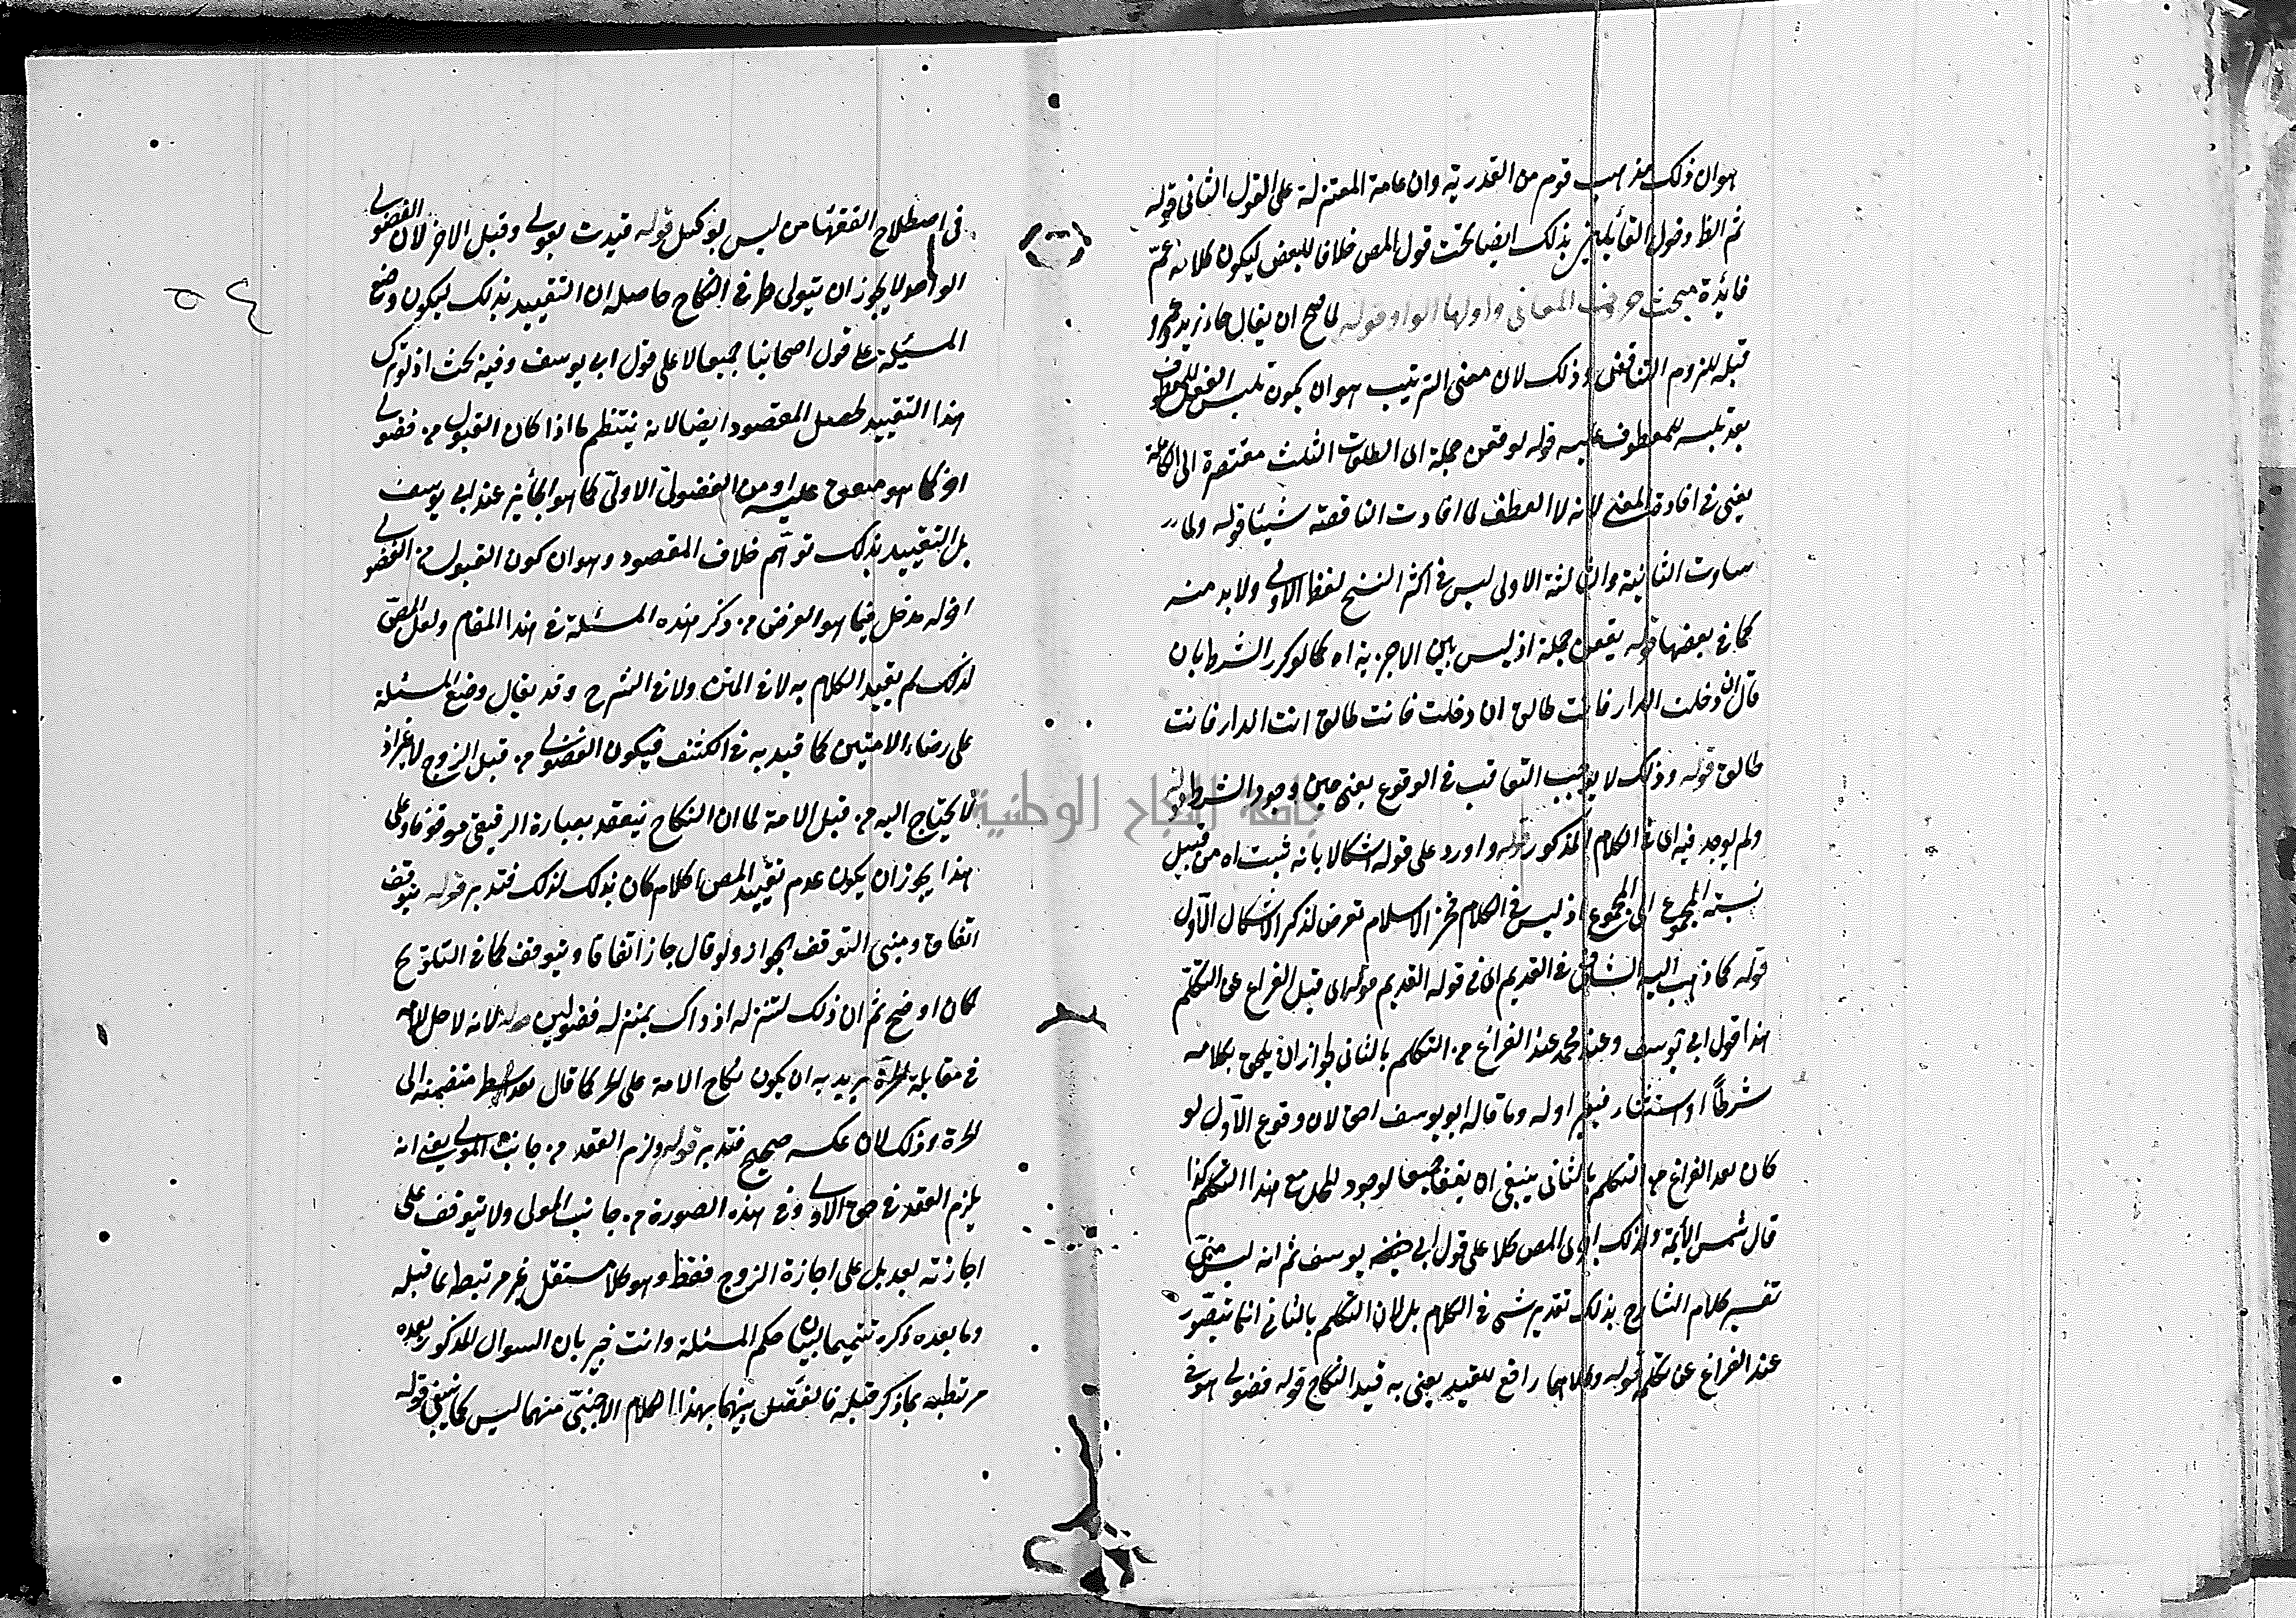 هو ان ذلك مذهب قوم من القدرية وان عامة المعتزلة على القول الثانى قوله
ثم الظ دخول القائلين بذلك ايضا تحت قول المص خلافا للبعض ليكون كلامه اعم
فائدة مبحث حروف المعانى واولها الواو قوله لما صح ان يقال جاء زيد وعمرو
قبله للزوم التناقض وذلك لان معنى الترتيب هو ان يكون تلبس الفعل للمعطوف
بعد تلبسه للمعطوف عليه قوله لو وقعن جملة اى الطلقات الثلث مفتقرة الى الكاملة
يعنى فى افادة المعنى لانه لولا العطف لما افادت الناقصة شيئا قوله ولما
ساوت الثانية والثالثة الاولى ليس فى اكثر النسخ لفظ الاولى ولا بد منه
كما فى بعضها قوله يقعن جملة اذ ليس بين الاجزية اه كما لو كرر الشرط بان
قال ان دخلت الدار فانت طالق ان دخلت فانت طالق انت الدار فانت
طالق قوله وذلك لا يوجب التعاقب فى الوقوع يعنى حين وجود الشرط
ولم يوجد فيه اى فى الكلام المذكور قوله واورد على قوله اشكالا بانه ثبت اه من قبيل
نسبة المجموع الى المجموع اذ ليس فى الكلام فخر الاسلام تعرض لذكر الاشكال الاول
قوله كما ذهب اليه الشافعى فى القديم اى فى قوله القديم قوله اى قبل الفراغ عن التكلم
هذا قول ابى يوسف وعند محمد عند الفراغ من التكلم بالثانى لجواز ان يلحق بكلامه
شرطا او استثناء فيغير اوله وما قاله ابو يوسف احق لان وقوع الاول لو
كان بعد الفراغ من التكلم بالثانى ينبغى ان يقعا جميعا لوجود المحل مع هذا التكلم كذا
قال شمس الأئمة ولذلك المص كلا على قول ابى يوسف ثم انه ليس مبنى
تفسير كلام الشارح بذلك تقدير شى فى الكلام بل لان التكلم بالثانى انما يتصور
عند الفراغ عن تكلمه قوله وكلاهما رافع للقيد يعنى به قيد النكاح قوله فضولى هو
٥٤
فى اصطلاح الفقهاء من ليس بوكيل قوله قيدت بقولى وقبل الاخر لان الفضولى
الواحد لا يجوز ان يتولى طرفى النكاح حاصله ان التقييد بذلك ليكون وضع
المسئلة على قول اصحابنا جميعا لا على قول ابى يوسف وفيه بحث اذ لو ترك
هذا التقييد لحصل المقصود ايضا لانه ينتظم ما اذا كان القبول من فضولى
اخر كما هو متفق عليه او من الفضولى الاولى كما هو الجائز عند ابى يوسف
بل التقييد بذلك توهم خلاف المقصود وهو ان كون القبول من الفضولى
اخر له مدخل فيما هو الغرض من ذكر هذه المسئلة فى هذا المقام ولعل المص
لذلك لم يقيد الكلام به لا فى المتن ولا فى الشرح وقد يقال وضع المسئلة
على رضاء الامتين كما قيد به فى الكشف فيكون الفضولى من قبل الزوج لا غير اذ
لا يحتاج اليه من قبل الامة لما ان النكاح ينعقد بعبارة الرقيق موقوفا وعلى
هذا يجوز ان يكون عدم تقييد المص الكلام كان بذلك لذلك فتدبر قوله يتوقف
اتفاق ومبنى التوقف الجواز ولو قال جاز اتفاقا ويتوقف كما فى التلويح
كان اوضح ثم ان ذلك لتنزله اذ ذاك بمنزلة فضوليين قوله لانه لا حل للامة
فى مقابلة الحرة يريد به ان يكون نكاح الامة على الحر كما قال بعد منضمنه الى
الحرة وذلك لان عكسه صحيح فتدبر قوله ولزم العقد من جانب المولى يعنى انه
يلزم العقد فى حق الاولى وفى هذه الصورة من جانب المولى ولا يتوقف على
اجازته بعد بل على اجازة الزوج فقط وهو كلام مستقل غير مرتبط بما قبله
وما بعده ذكره تتميما لبيان حكم المسئلة وانت خبير بان السوال المذكور بعده
مرتبط بما ذكر قبله فالفصل بينهما بهذا الكلام الاجنبى منهما ليس كما ينبغى قوله
جامعة النجاح الوطنية